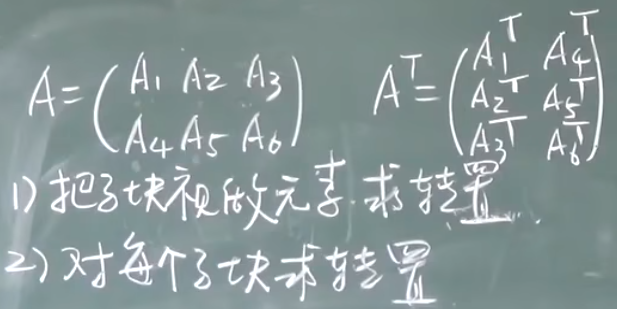 A=(A₁ A₂ A₃ Aᵀ=(A₁ᵀ A₄ᵀ
A₄ A₅ A₆) A₂ᵀ A₅ᵀ
A₃ᵀ A₆ᵀ)
1) 把子块视做元素.求转置.
2) 对每个子块求转置